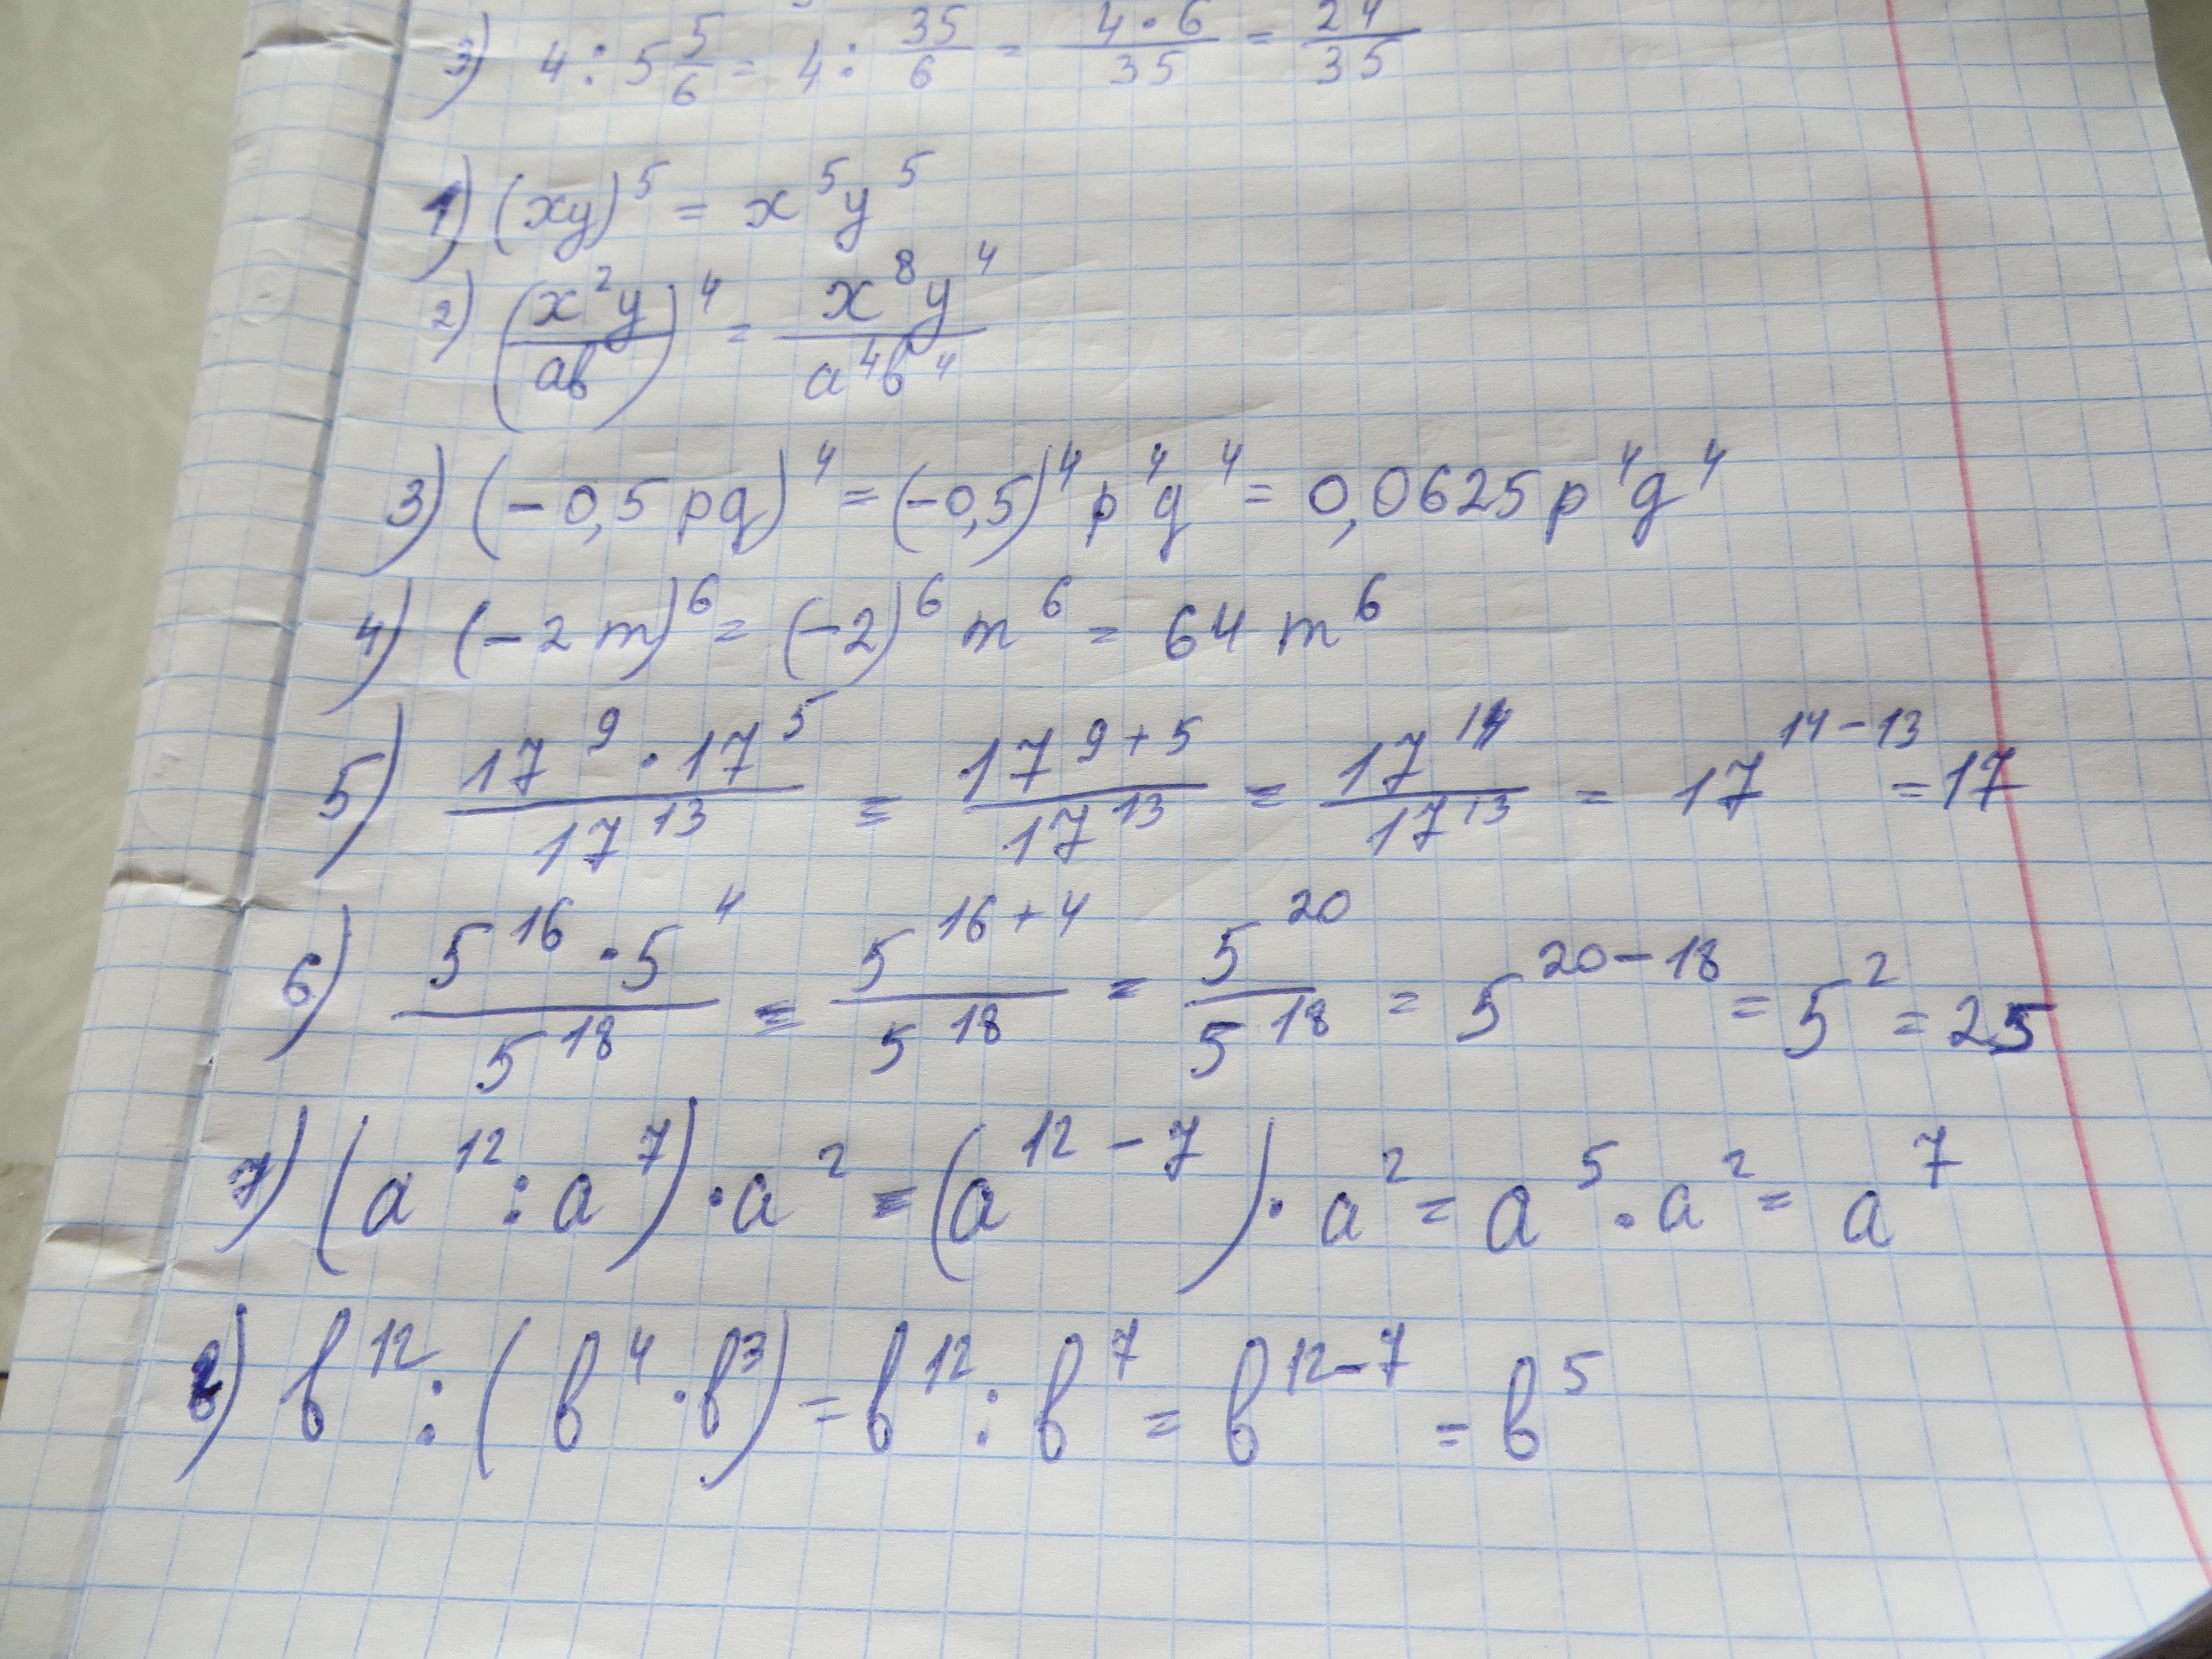 3) 4 : 5 5/6 = 4 : 35/6 = 4·6/35 = 24/35
1) (xy)^5 = x^5y^5
2) (x^2y/aв)^4 = x^8y^4/a^4в^4
3) (-0,5pq)^4 = (-0,5)^4 p^4q^4 = 0,0625p^4q^4
4) (-2m)^6 = (-2)^6 m^6 = 64m^6
5) 17^9·17^5/17^13 = 17^(9+5)/17^13 = 17^14/17^13 = 17^(14-13) = 17
6) 5^16·5^4/5^18 = 5^(16+4)/5^18 = 5^20/5^18 = 5^(20-18) = 5^2 = 25
7) (a^12 : a^7)·a^2 = (a^(12-7))·a^2 = a^5·a^2 = a^7
8) в^12 : (в^4·в^3) = в^12 : в^7 = в^(12-7) = в^5